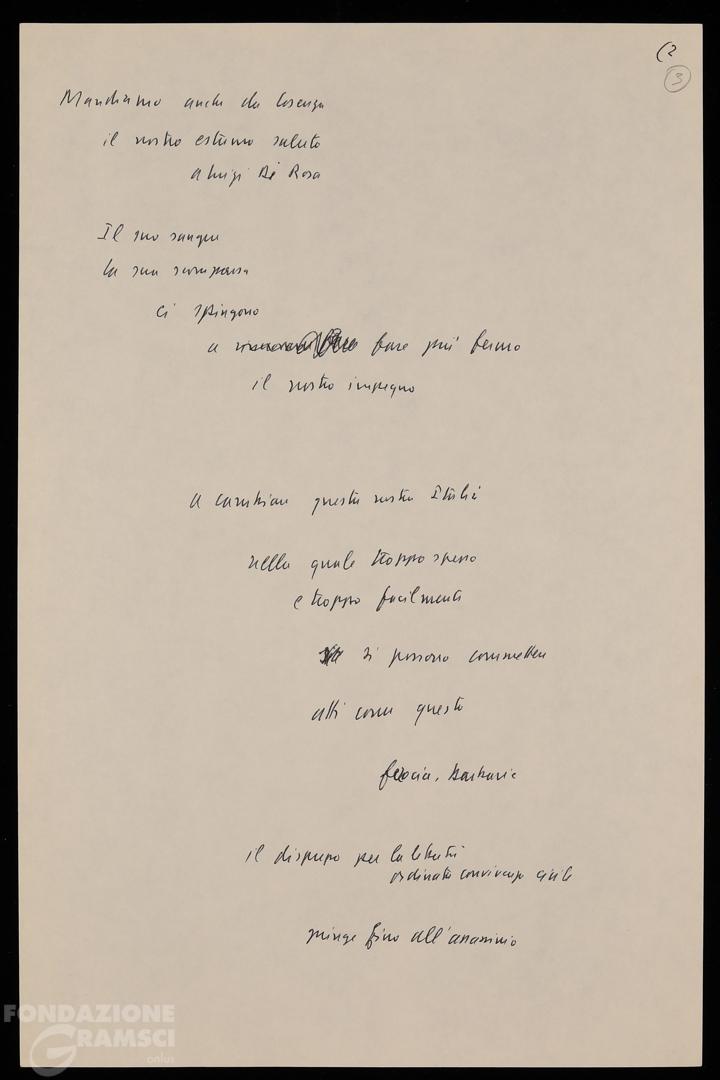 (2
3
Mandiamo anche da Cosenza
il nostro estremo saluto
a Luigi Di Rosa
Il suo sangue
la sua scomparsa
ci spingono
a fare più fermo
il nostro impegno
a cambiare questa nostra Italia
nella quale troppo spesso
e troppo facilmente
si possono commettere
atti come questo
feroci, barbarie
il disprezzo per la libertà
ordinata convivenza civile
giunge fino all'assassinio
FONDAZIONE
GRAMSCI
onlus